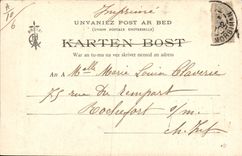 Imprimé
A
10/6
UNVANIEZ POST AR BED
(UNION POSTALE UNIVERSELLE)
KARTEN BOST
War an tu-ma ne vez skrivet nemed an adres
AN A Melle Marie Louise Claverie
75 rue du Rempart
Rochefort s/m.
Ch. Inf